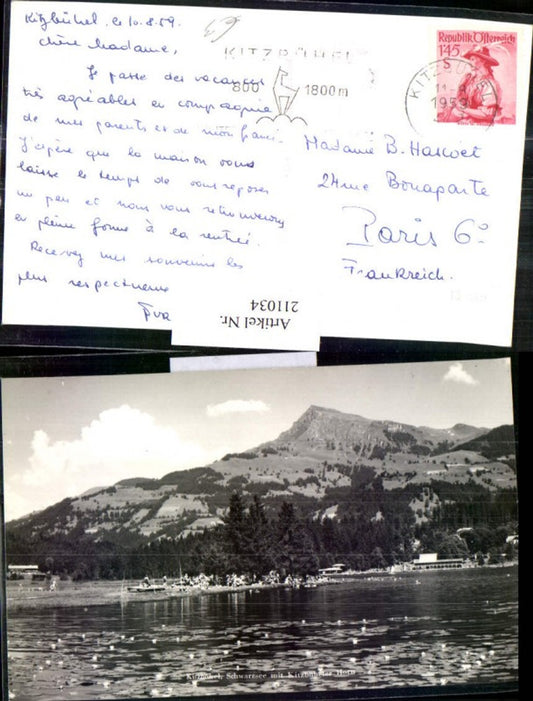 Kitzbühel, le 10.8.59.
chère Madame,
Je passe des vacances
très agréables en compagnie
de mes parents et de mon
J'espère que la maison vous
laisse le temps de vous reposer
un peu et nous vous retrouverons
en pleine forme à la rentrée.
Recevez mes souvenirs les
plus respectueux
KITZBÜHEL
800 1800m
Republik Österreich
1'45
KITZBÜHEL
1959
Madame B.
24 rue Bonaparte
Paris 6°
Frankreich.
Artikel Nr.
211034
Kitzbühel, Schwarzsee mit Kitzbühler Horn